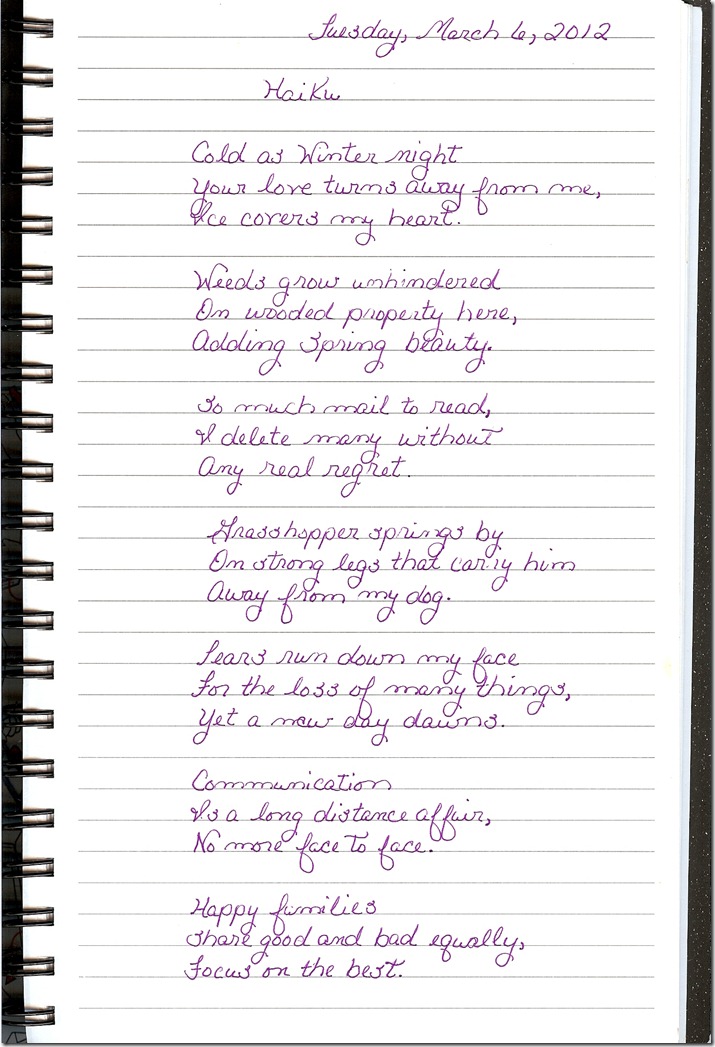 Tuesday, March 6, 2012
Haiku
Cold as Winter night
Your love turns away from me,
Ice covers my heart.
Weeds grow unhindered
On wooded property here,
Adding Spring beauty.
So much mail to read,
I delete many without
Any real regret.
Grasshopper springs by
On strong legs that carry him
Away from my dog.
Tears run down my face
For the loss of many things,
Yet a new day dawns.
Communication
Is a long distance affair,
No more face to face.
Happy families
Share good and bad equally,
Focus on the best.